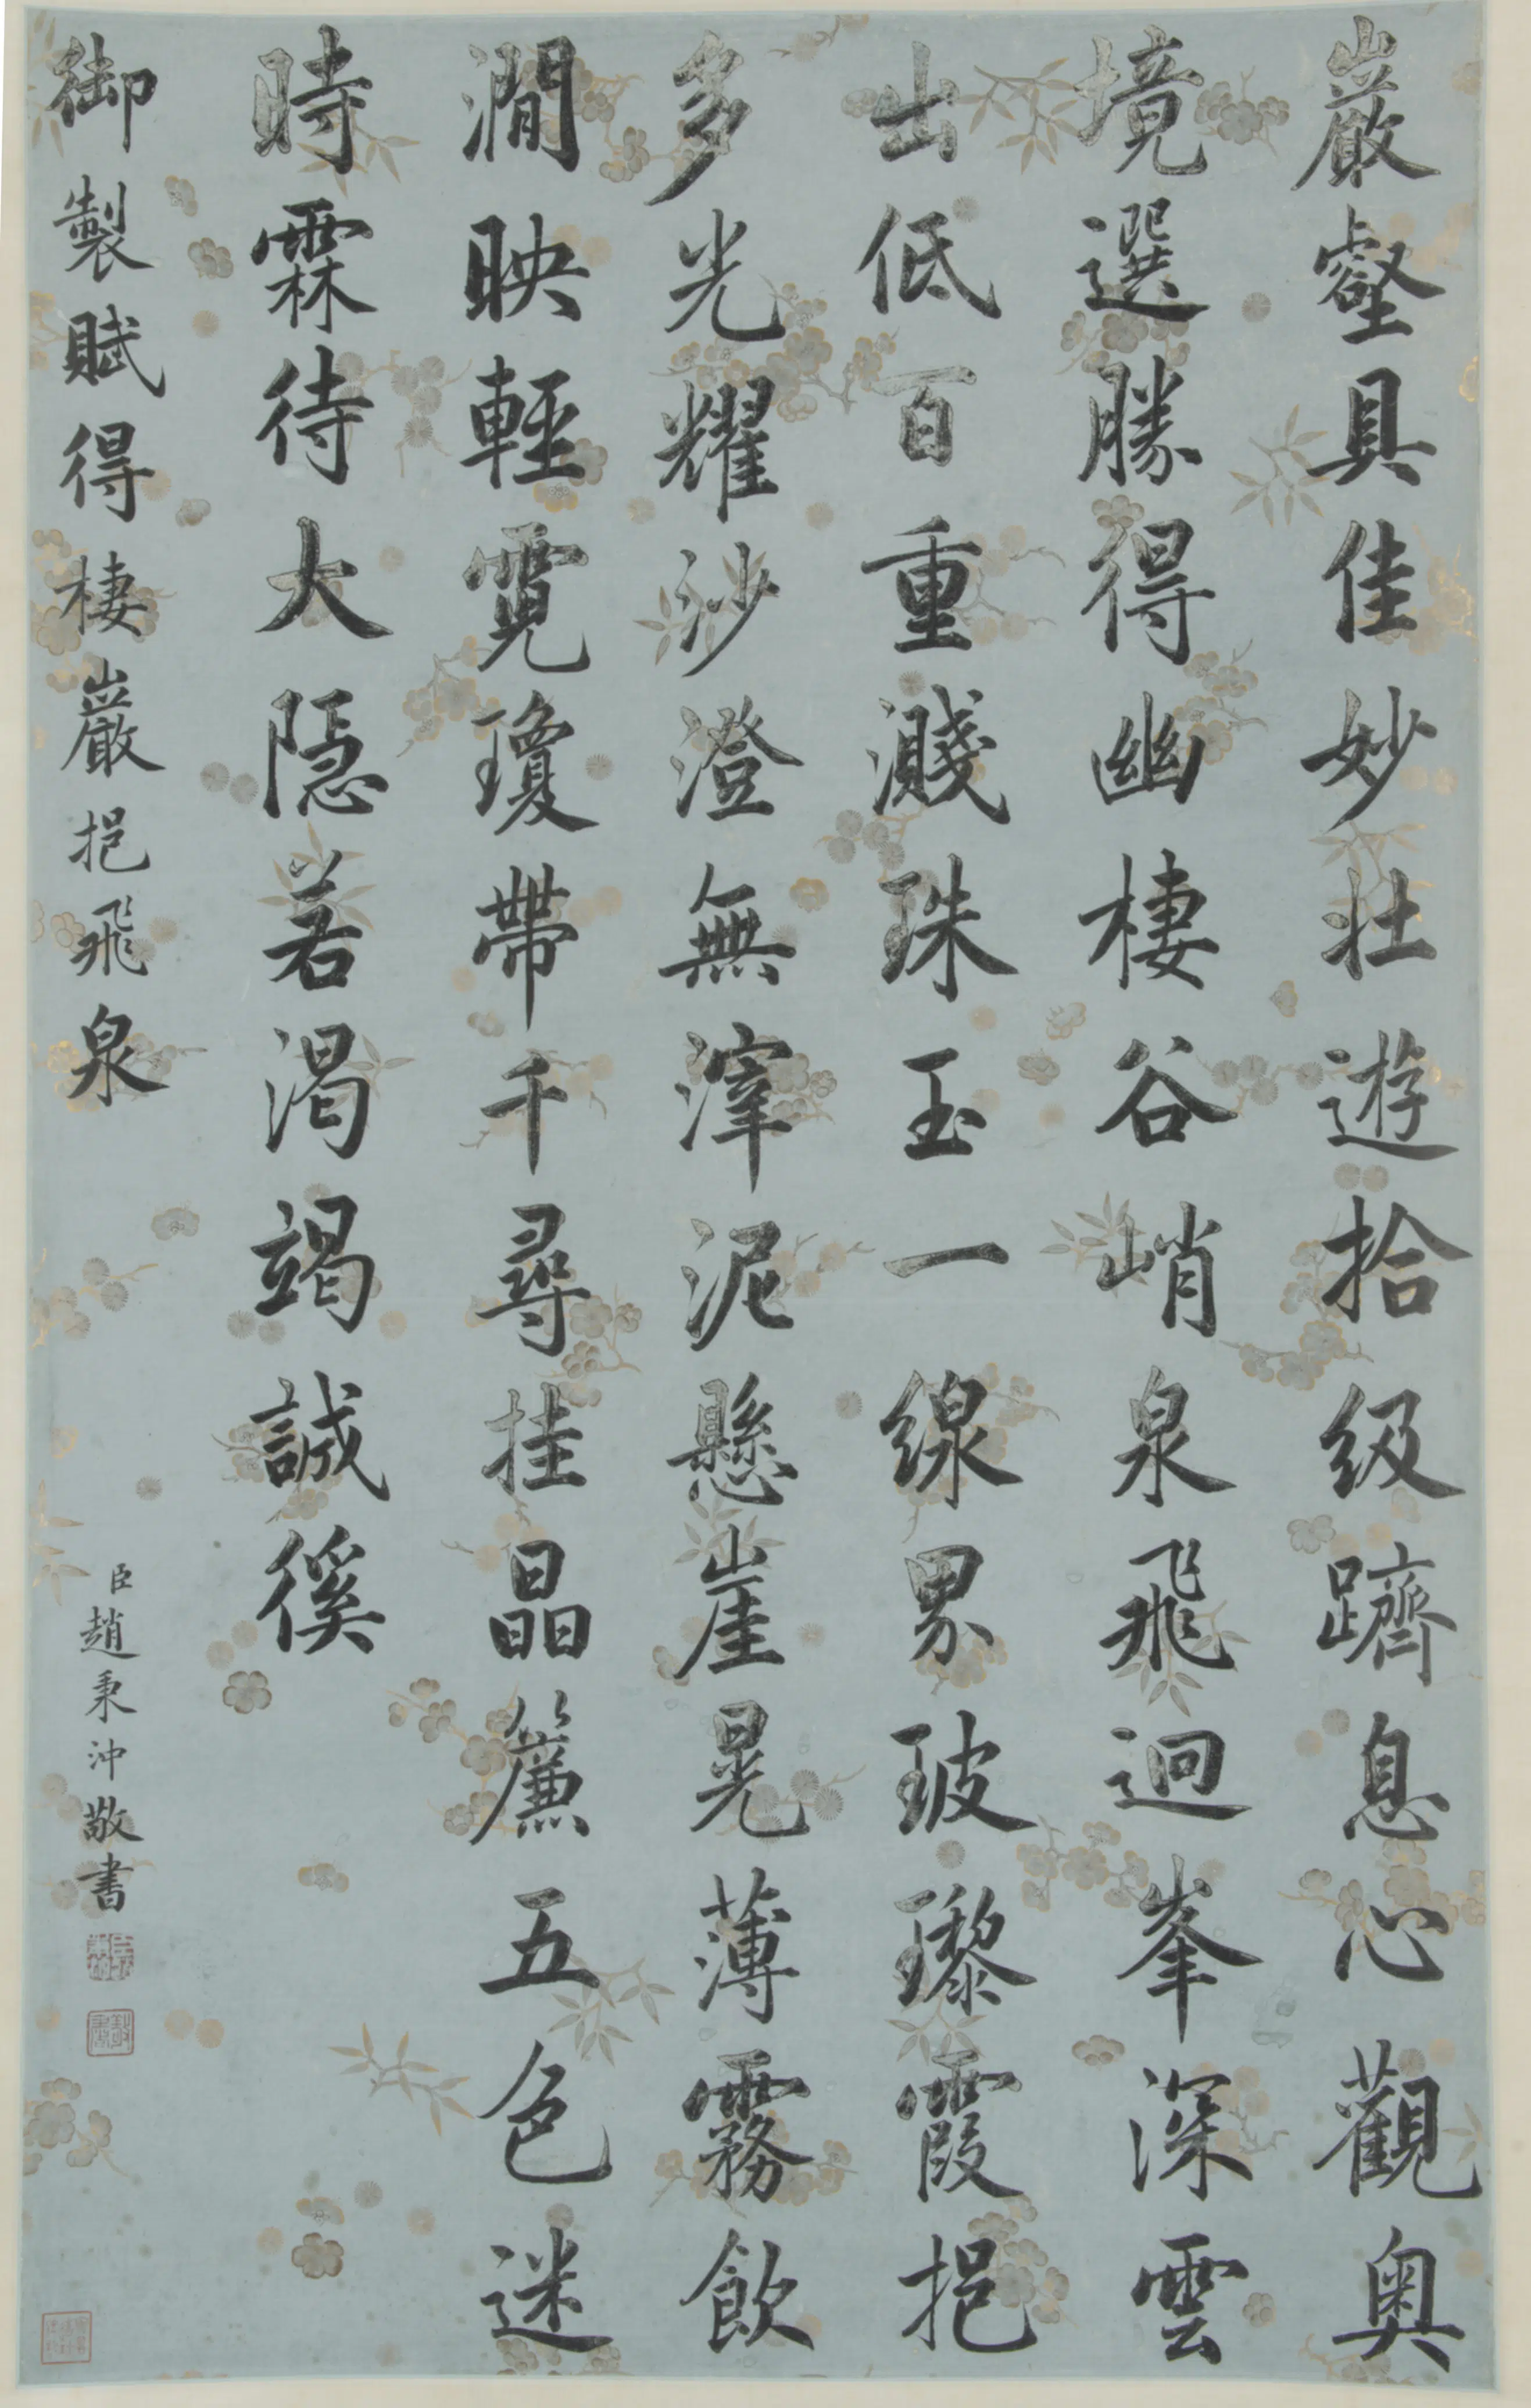 巖壑具佳妙壯遊拾级躋息心觀奥
境選勝得幽棲谷峭泉飛迥峯深雲
出低百重濺珠玉一線界玻瓈霞挹
多光耀沙澄無滓泥懸崖晃薄霧飲
澗映輕霓瓊帶千尋挂晶簾五色迷
時霖待大隠若渴竭誠徯
御製賦得棲巖挹飛泉
臣趙秉沖敬書